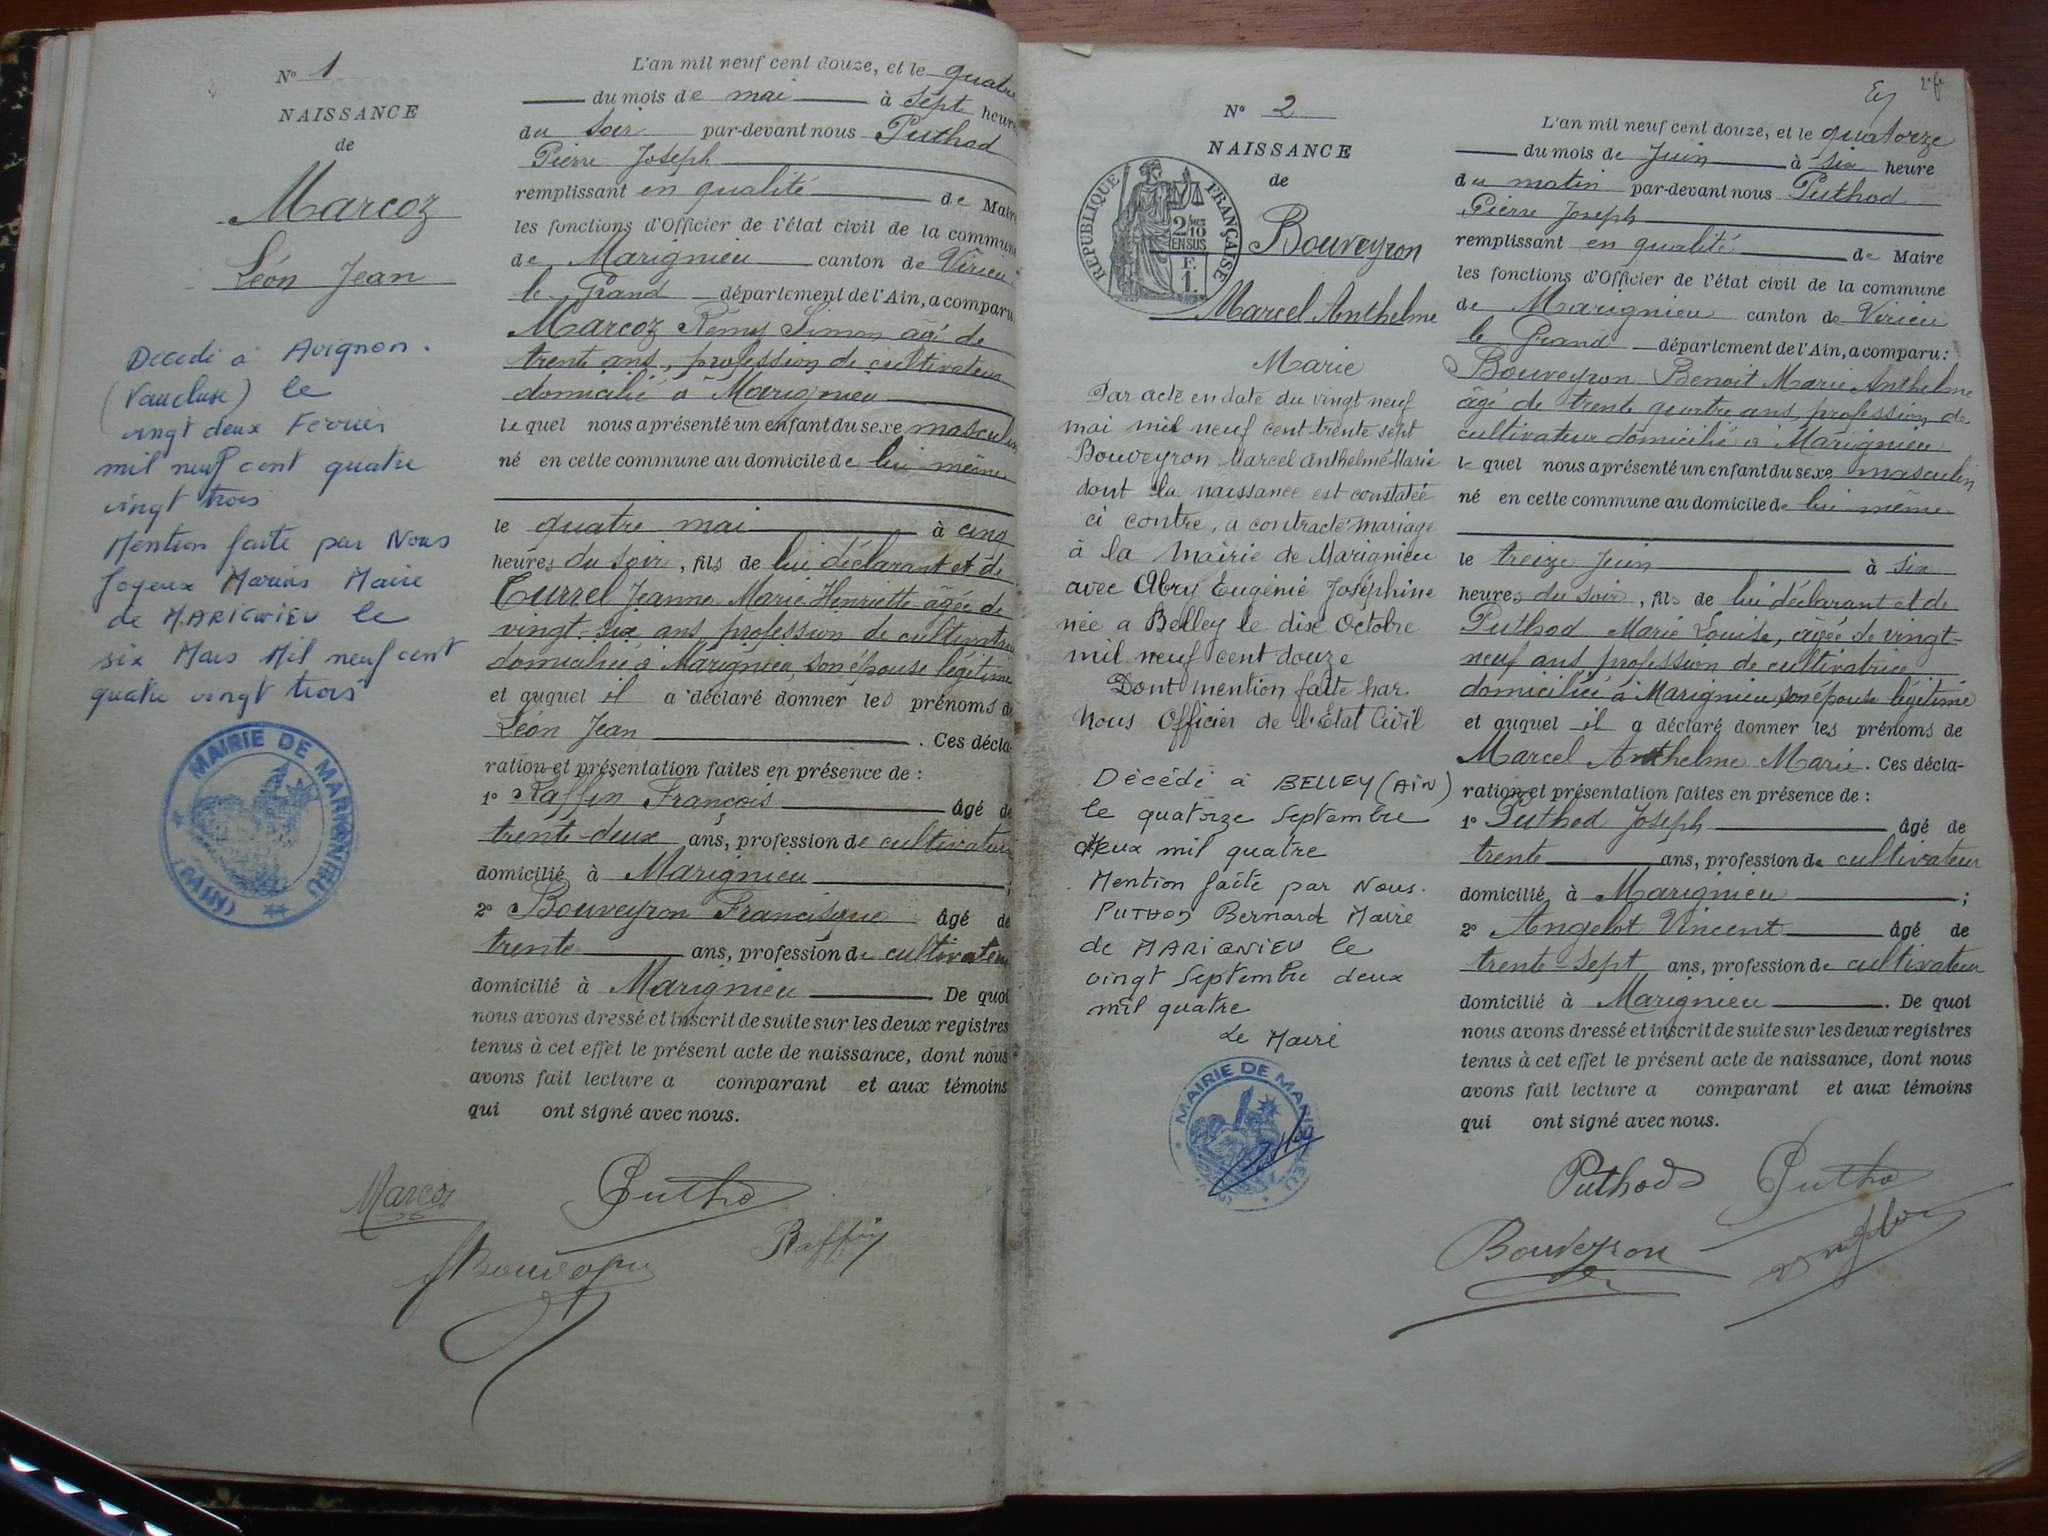 N° 1
NAISSANCE
de
Marcoz
Léon Jean
Décédé à Avignon.
(Vaucluse) le
vingt deux Février
mil neuf cent quatre
vingt trois
Mention faite par Nous
Joyeux Marius Maire
de MARIGNIEU le
six Mars Mil neuf cent
quatre vingt trois
MAIRIE DE MARIGNIEU
(AIN)
L'an mil neuf cent douze, et le quatre
du mois de mai à sept heure
du soir par-devant nous Puthod
Pierre Joseph
remplissant en qualité de Maire
les fonctions d'Officier de l'état civil de la commune
de Marignieu canton de Virieu
le Grand département de l'Ain, a comparu
Marcoz Rémy Simon âgé de
trente ans, profession de cultivateur
domicilié à Marignieu
lequel nous a présenté un enfant du sexe masculin
né en cette commune au domicile de lui même
le quatre mai à cinq
heures du soir, fils de lui déclarant et de
Turrel Jeanne Marie Henriette âgée de
vingt-six ans, profession de cultivatrice
domiciliée à Marignieu, son épouse légitime
et auquel il a déclaré donner les prénoms de
Léon Jean . Ces décla-
ration et présentation faites en présence de :
1° Raffin François âgé de
trente-deux ans, profession de cultivateur
domicilié à Marignieu ;
2° Bouveyron Francisque âgé de
trente ans, profession de cultivateur
domicilié à Marignieu . De quoi
nous avons dressé et inscrit de suite sur les deux registres
tenus à cet effet le présent acte de naissance, dont nous
avons fait lecture a comparant et aux témoins
qui ont signé avec nous.
Marcoz
Putho
Bouveyron
Raffin
2e f
N° 2
NAISSANCE
de
RÉPUBLIQUE FRANÇAISE
2/10
EN SUS
F.
1.
Bouveyron
Marcel Anthelme
Marie
Par acte en date du vingt neuf
mai mil neuf cent trente sept
Bouveyron Marcel Anthelme Marie
dont la naissance est constatée
ci contre, a contracté mariage
à la Mairie de Marignieu
avec Abry Eugénie Joséphine
née a Belley le dix Octobre
mil neuf cent douze
Dont mention faite par
Nous Officier de l'Etat Civil
Décédé à BELLEY (AIN)
le quatorze Septembre
deux mil quatre
Mention faite par Nous.
PUTHOD Bernard Maire
de MARIGNIEU le
vingt Septembre deux
mil quatre
Le Maire
MAIRIE DE MARIGNIEU
L'an mil neuf cent douze, et le quatorze
du mois de Juin à six heure
du matin par-devant nous Puthod
Pierre Joseph
remplissant en qualité de Maire
les fonctions d'Officier de l'état civil de la commune
de Marignieu canton de Virieu
le Grand département de l'Ain, a comparu :
Bouveyron Benoit Marie Anthelme
âgé de trente quatre ans, profession de
cultivateur domicilié à Marignieu
lequel nous a présenté un enfant du sexe masculin
né en cette commune au domicile de lui même
le treize Juin à six
heures du soir, fils de lui déclarant et de
Puthod Marie Louise, âgée de vingt-
neuf ans, profession de cultivatrice
domiciliée à Marignieu, son épouse légitime
et auquel il a déclaré donner les prénoms de
Marcel Anthelme Marie. Ces décla-
ration et présentation faites en présence de :
1° Puthod Joseph âgé de
trente ans, profession de cultivateur
domicilié à Marignieu ;
2° Angelot Vincent âgé de
trente-sept ans, profession de cultivateur
domicilié à Marignieu . De quoi
nous avons dressé et inscrit de suite sur les deux registres
tenus à cet effet le présent acte de naissance, dont nous
avons fait lecture a comparant et aux témoins
qui ont signé avec nous.
Puthod
Putho
Bouveyron